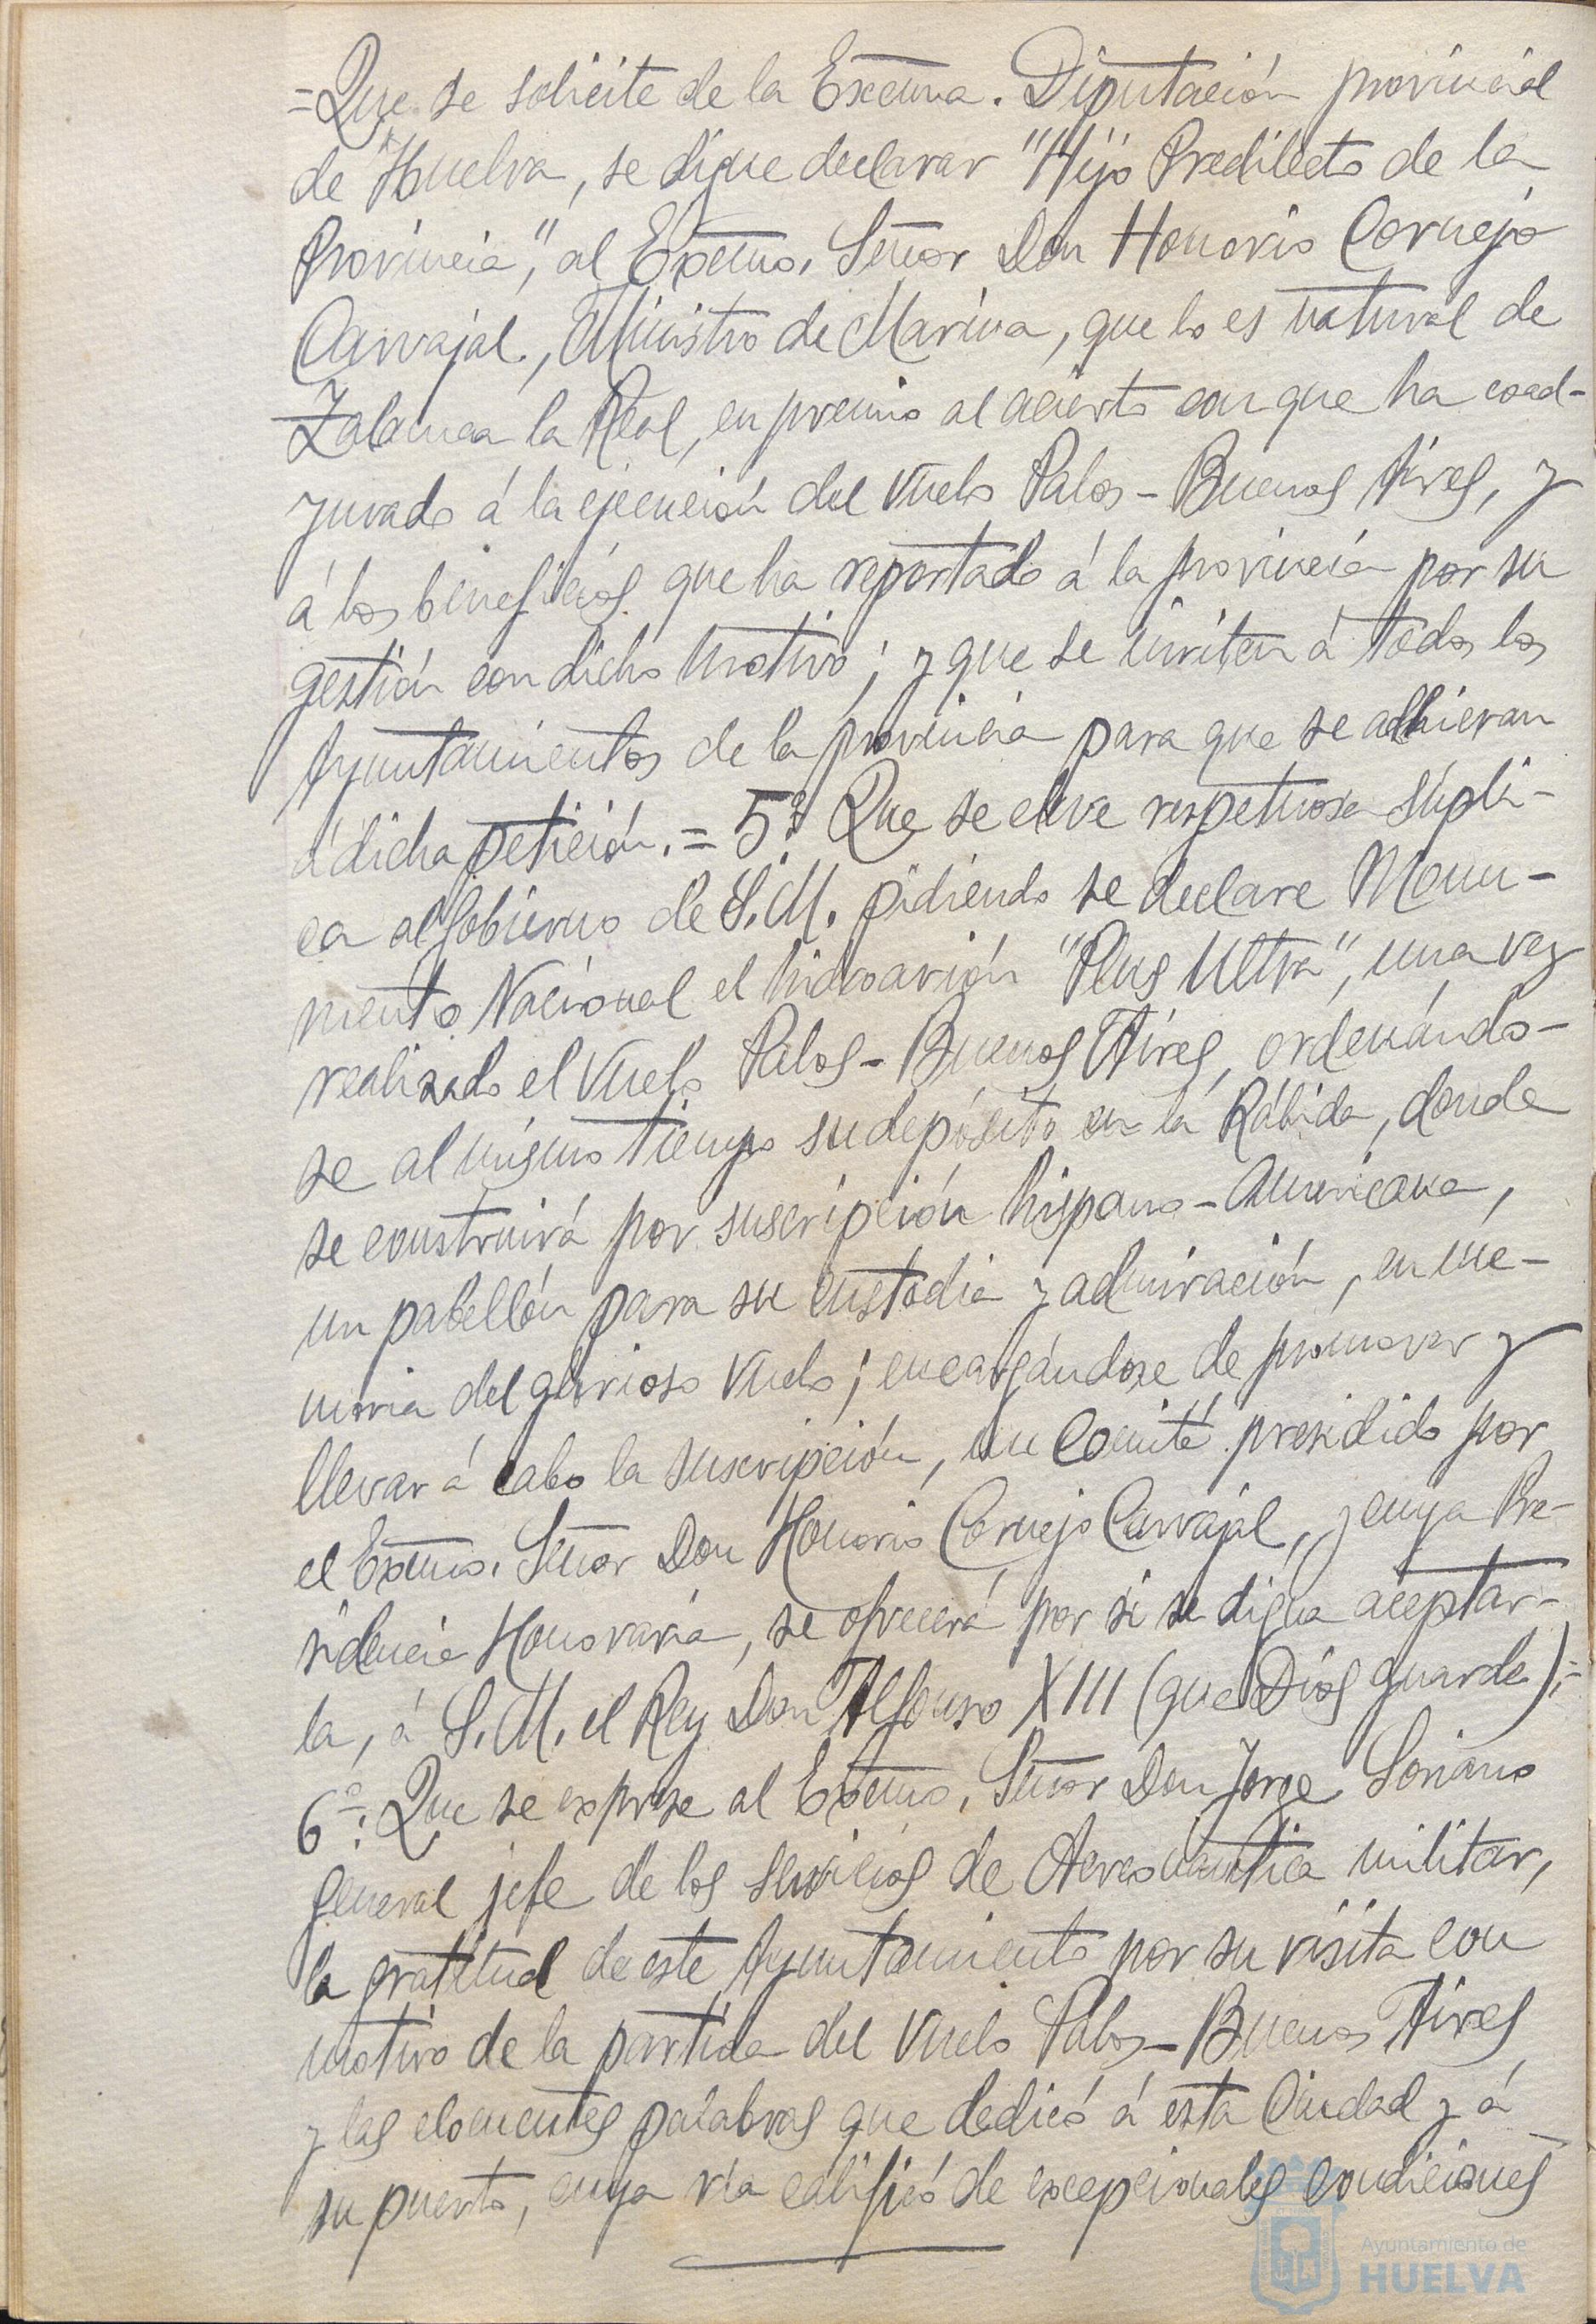 =Que se solicite de la Excma. Diputación provincial
de Huelva, se digne declarar "Hijo Predilecto de la
Provincia", al Excmo. Señor Don Honorio Cornejo
Carvajal, Ministro de Marina, que lo es natural de
Zalamea la Real, en premio al acierto con que ha coad-
yuvado á la ejecución del vuelo Palos-Buenos Aires, y
á los beneficios que ha reportado á la provincia por su
gestión con dicho motivo; y que se inviten á todos los
Ayuntamientos de la provincia para que se adhieran
á dicha petición.=5º: Que se eleve respetuosa súpli-
ca al Gobierno de S.M. pidiendo se declare Monu-
mento Nacional el hidroavión "Plus Ultra", una vez
realizado el vuelo Palos-Buenos Aires, ordenándo-
se al mismo tiempo su depósito en la Rábida, donde
se construirá por suscripción hispano-americana,
un pabellón para su custodia y admiración, en me-
moria del glorioso vuelo; encargándose de promover y
llevar á cabo la suscripción, un Comité presidido por
el Excmo. Señor Don Honorio Cornejo Carvajal, y cuya Pre-
sidencia Honoraria, se ofrecerá por si se digna aceptar-
la, á S.M. el Rey Don Alfonso XIII (que Dios guarde).=
6º: Que se exprese al Excmo. Señor Don Jorge Soriano
general jefe de los servicios de Aeronáutica militar,
la gratitud de este Ayuntamiento por su visita con
motivo de la partida del vuelo Palos-Buenos Aires
y las elocuentes palabras que dedicó á esta Ciudad y á
su puerto, cuya ría calificó de excepcionales condiciones
Ayuntamiento de
HUELVA